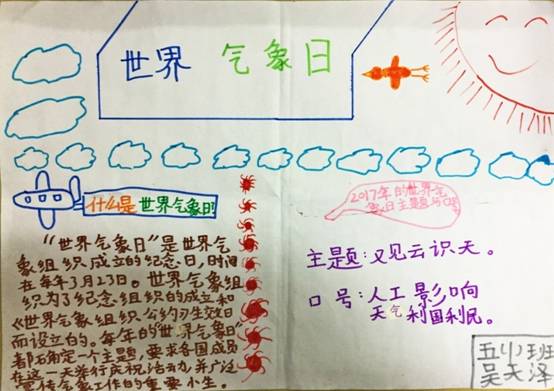 世界 气象日
什么是世界气象日?
“世界气象日”是世界气
象组织成立的纪念日,时间
在每年3月23日。世界气象组
织为了纪念组织的成立和
《世界气象组织公约》生效日
而设立的。每年的“世界气象日”
都确定一个主题,要求各国成员
在这一天举行庆祝活动,并广泛
宣传气象工作的重要
2017年的世界气
象日主题与口号
主题:观云识天。
口号:人工影响
天气利国利民。
五 班
吴天泽